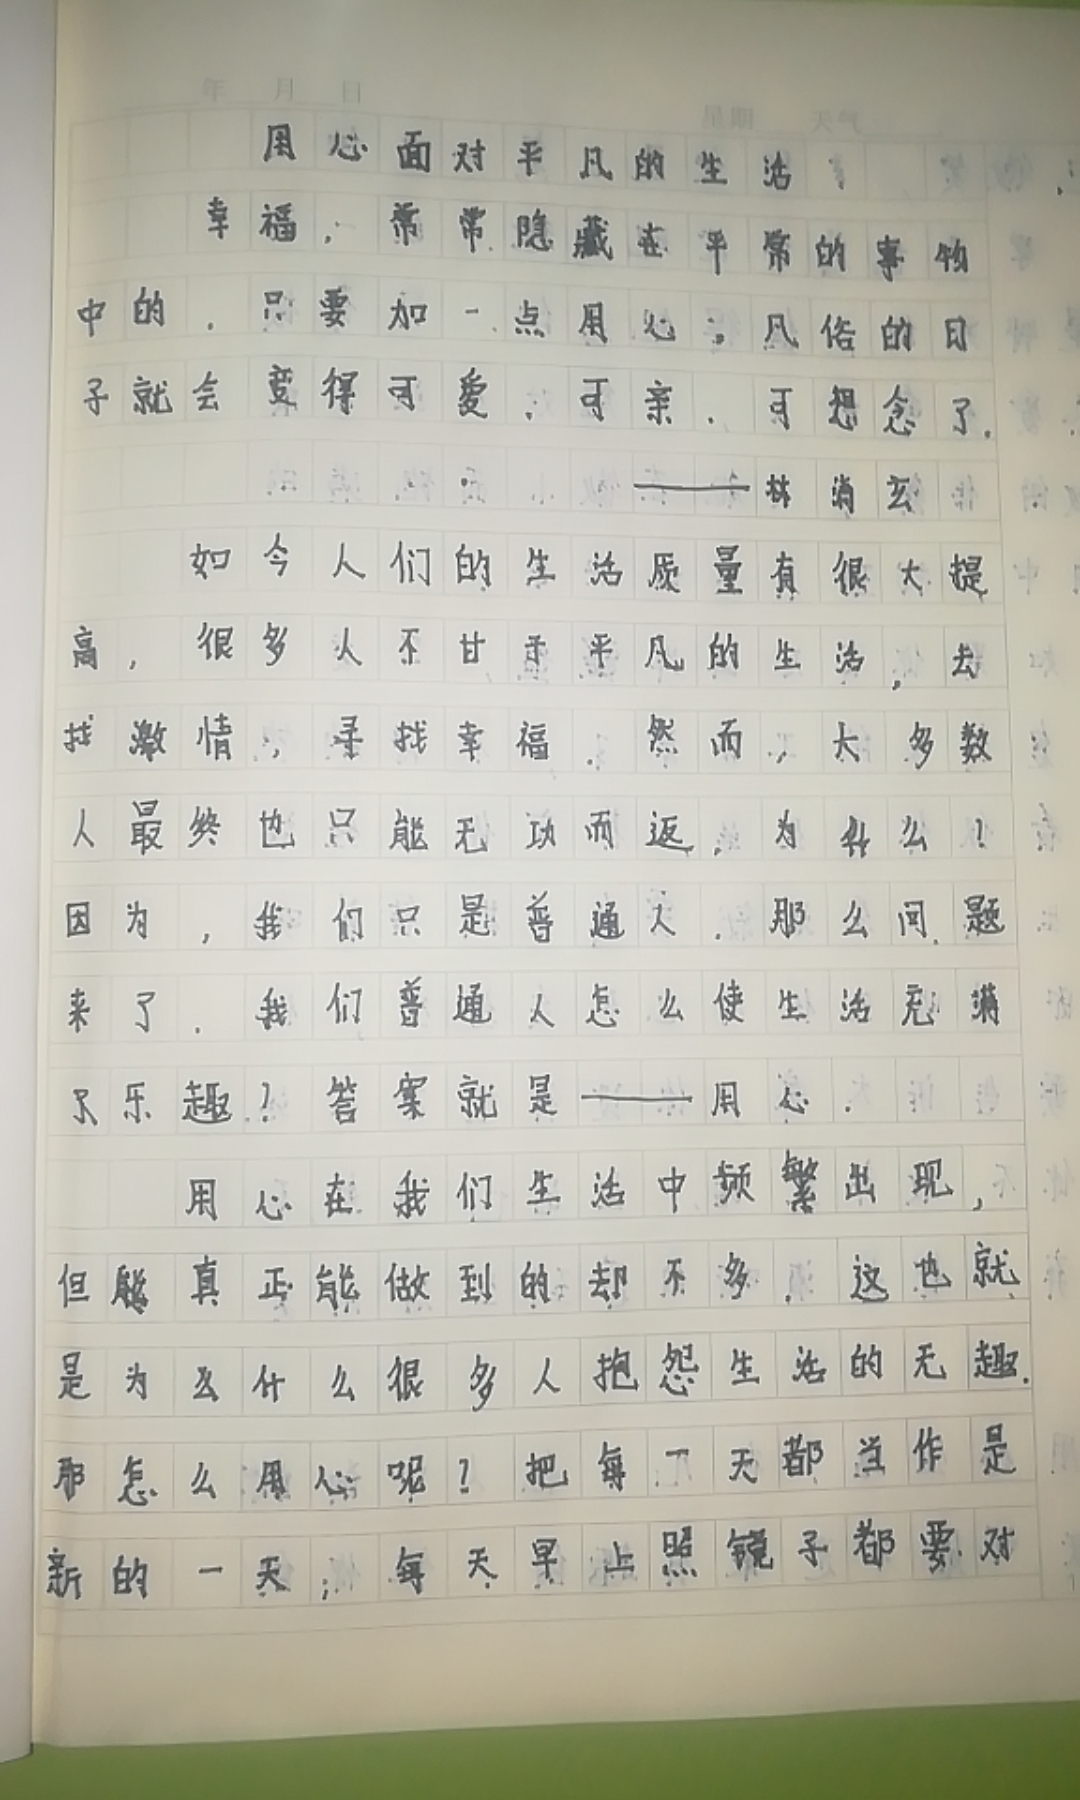 年 月 日
星期 天气
用心面对平凡的生活
幸福，常常隐藏在平常的事物
中的．只要加一点用心。凡俗的日
子就会变得可爱．可亲．可想念了．
——林消玄
如今人们的生活质量有很大提
高，很多人不甘于平凡的生活，去
找激情，寻找幸福．然而，大多数
人最终也只能无功而返．为什么？
因为，我们只是普通人．那么问题
来了．我们普通人怎么使生活充满
了乐趣？答案就是——用心．
用心在我们生活中频繁出现，
但真正能做到的却不多．这也就
是为么什么很多人抱怨生活的无趣．
那怎么用心呢？把每一天都当作是
新的一天；每天早上照镜子都要对